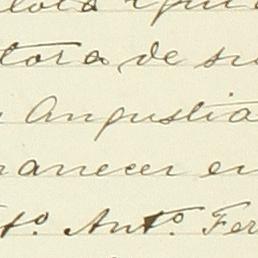 tora de su
Angustia
anecer en
to. Anto. Fer